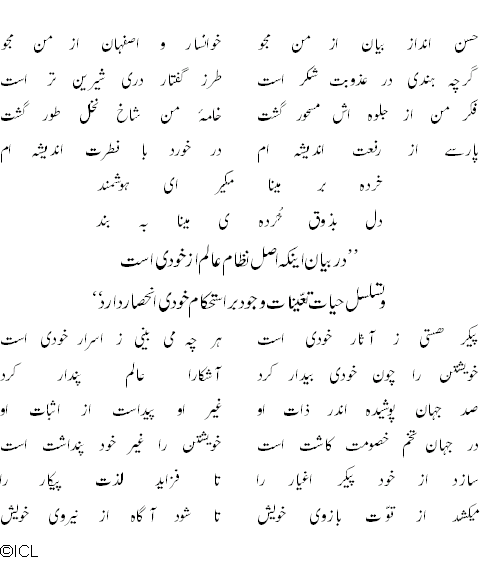 حسن انداز بیان از من مجو خوانسار و اصفہان از من مجو
گرچہ ہندی در عذوبت شکر است طرز گفتار دری شیرین تر است
فکر من از جلوہ اش مسحور گشت خامۂ من شاخ نخل طور گشت
پارسے از رفعت اندیشہ ام در خورد با فطرت اندیشہ ام
خردہ بر مینا مگیر ای ہوشمند
دل بذوق خُردہ ی مینا بہ بند
’’در بیان اینکہ اصل نظام عالم از خودی است
و تسلسل حیات تعیّنات وجود بر استحکام خودی انحصار دارد‘‘
پیکر ھستی ز آثار خودی است ہر چہ می بینی ز اسرار خودی است
خویشتن را چون خودی بیدار کرد آشکارا عالم پندار کرد
صد جہان پوشیدہ اندر ذات او غیر او پیداست از اثبات او
در جہان تخم خصومت کاشت است خویشتن را غیر خود پنداشت است
سازد از خود پیکر اغیار را تا فزاید لذت پیکار را
میکشد از قوّت بازوی خویش تا شود آگاہ از نیروی خویش
©ICL